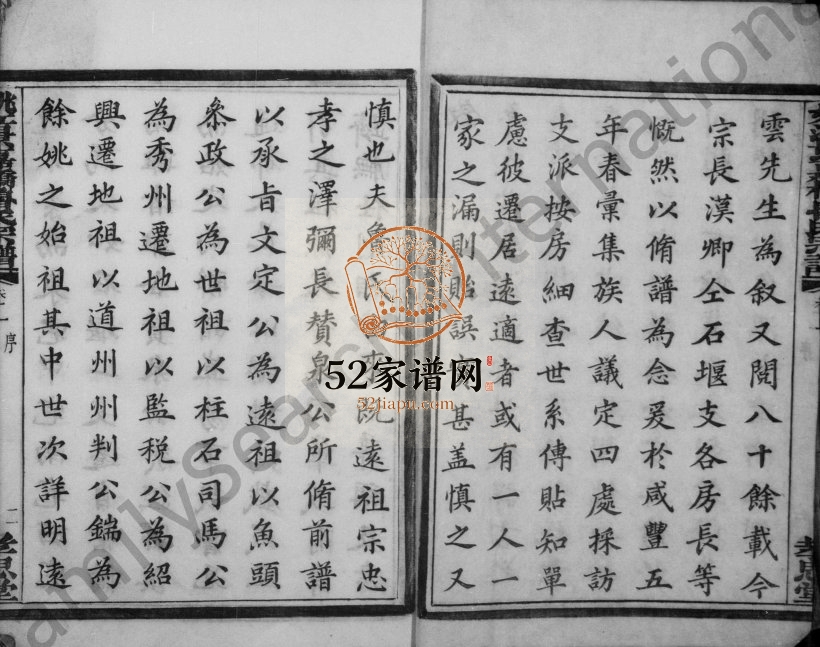 雲先生為叙又閱八十餘載今
宗長漢卿仝石堰支各房長等
慨然以脩譜為念爰於咸豐五
年春彙集族人議定四處採訪
支派按房細查世系傳貼知單
慮彼遷居遠適者或有一人一
家之漏則貽誤甚蓋慎之又
慎也夫魯既遠祖宗忠
孝之澤彌長贊泉公所脩前譜
以承旨文定公為遠祖以魚頭
叅政公為世祖以柱石司馬公
為秀州遷地祖以監税公為紹
興遷地祖以道州州判公鍴為
餘姚之始祖其中世次詳明遠
序
二
孝思堂
52家谱网
52jiapu.com
FamilySearch International